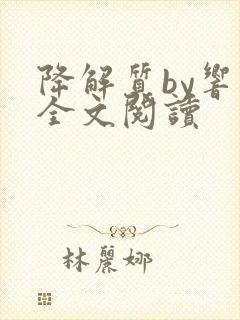 降解質by響
全文閱讀
林麗娜